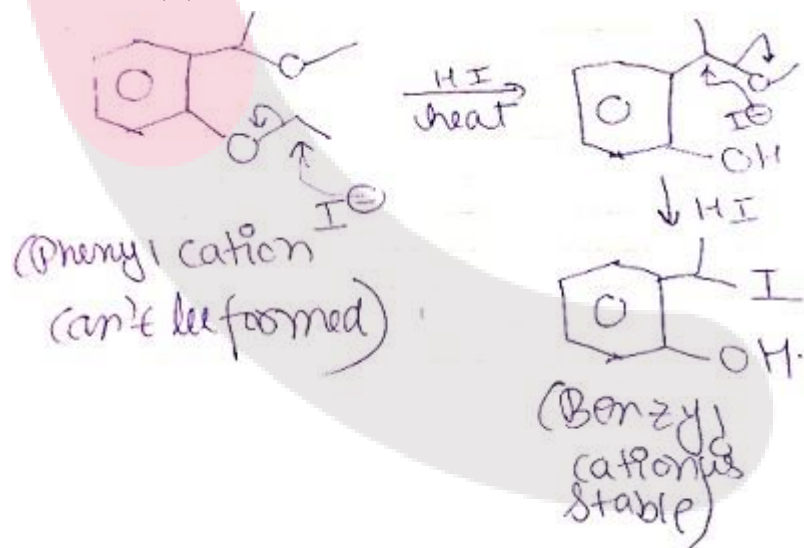 HI
heat
O
O
O
I⊖
O
O
I⊖
OH
↓ HI
(Phenyl cation
can't be formed)
O
I
OH.
(Benzyl
cation is
stable)